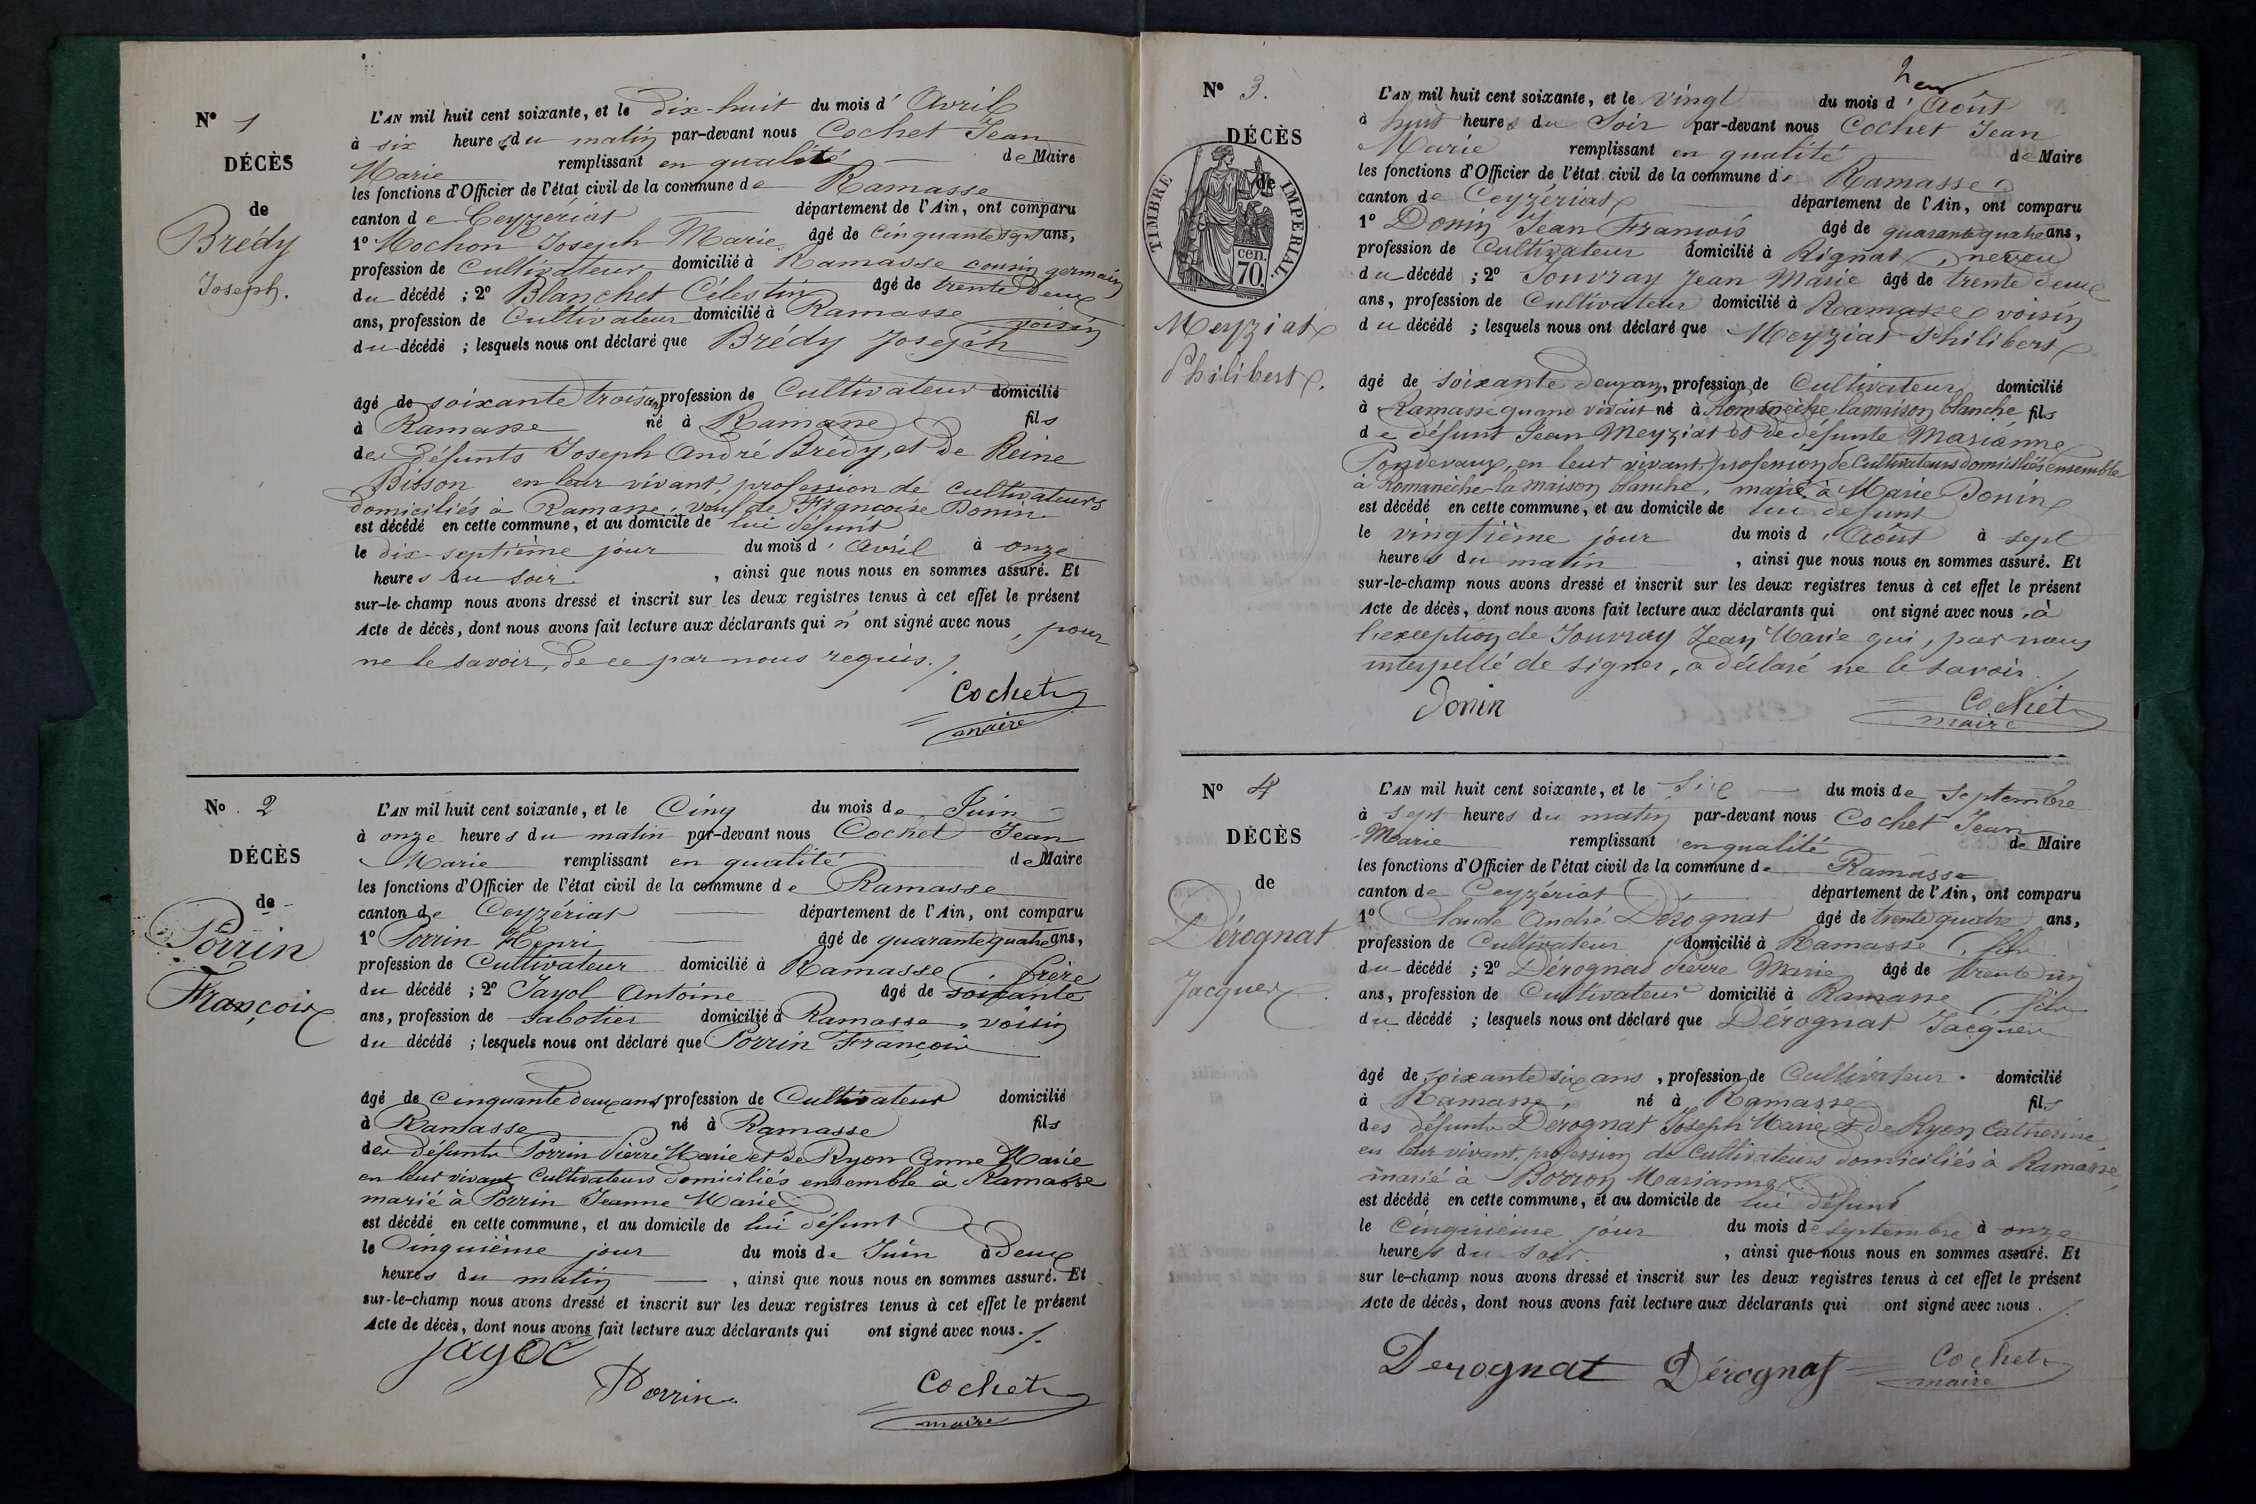 N° 1
DÉCÈS
de
Brédy
Joseph.
L'AN mil huit cent soixante, et le dix-huit du mois d' Avril
à six heures du matin par-devant nous Cochet Jean
Marie remplissant en qualité de Maire
les fonctions d'Officier de l'état civil de la commune de Ramasse
canton de Ceyzériat département de l'Ain, ont comparu
1° Mochon Joseph Marie âgé de cinquante sept ans,
profession de Cultivateur domicilié à Ramasse cousin germain
du décédé ; 2° Blanchet Célestin âgé de trente deux
ans, profession de Cultivateur domicilié à Ramasse voisin
du décédé ; lesquels nous ont déclaré que Brédy Joseph
âgé de soixante trois ans profession de Cultivateur domicilié
à Ramasse né à Ramasse fils
des défunts Joseph André Brédy, et de Reine
Bisson en leur vivant, profession de cultivateurs
domiciliés à Ramasse, veuf de Françoise Donin
est décédé en cette commune, et au domicile de lui défunt
le dix-septième jour du mois d' Avril à onze
heures du soir , ainsi que nous nous en sommes assuré. Et
sur-le-champ nous avons dressé et inscrit sur les deux registres tenus à cet effet le présent
Acte de décès, dont nous avons fait lecture aux déclarants qui n' ont signé avec nous, pour
ne le savoir, de ce par nous requis.
Cochet
maire
N° 2
DÉCÈS
de
Porrin
François
L'AN mil huit cent soixante, et le Cinq du mois de Juin
à onze heures du matin par-devant nous Cochet Jean
Marie remplissant en qualité de Maire
les fonctions d'Officier de l'état civil de la commune de Ramasse
canton de Ceyzériat département de l'Ain, ont comparu
1° Porrin Henri âgé de quarante quatre ans,
profession de Cultivateur domicilié à Ramasse, frère
du décédé ; 2° Jayol Antoine âgé de soixante
ans, profession de Sabotier domicilié à Ramasse, voisin
du décédé ; lesquels nous ont déclaré que Porrin François
âgé de cinquante deux ans profession de Cultivateur domicilié
à Ramasse né à Ramasse fils
des défunts Porrin Pierre Marie et de Ryon Anne Marie
en leur vivant Cultivateurs domiciliés ensemble à Ramasse
marié à Porrin Jeanne Marie
est décédé en cette commune, et au domicile de lui défunt
le Cinquième jour du mois de Juin à Deux
heures du matin , ainsi que nous nous en sommes assuré. Et
sur-le-champ nous avons dressé et inscrit sur les deux registres tenus à cet effet le présent
Acte de décès, dont nous avons fait lecture aux déclarants qui ont signé avec nous.
Jayol
Porrin
Cochet
maire
N° 3.
DÉCÈS
de
TIMBRE IMPÉRIAL.
70 cen.
Meyziat
Philibert.
L'AN mil huit cent soixante, et le vingt du mois d' Août
à huit heures du soir par-devant nous Cochet Jean
Marie remplissant en qualité de Maire
les fonctions d'Officier de l'état civil de la commune de Ramasse
canton de Ceyzériat département de l'Ain, ont comparu
1° Donin Jean François âgé de quarante quatre ans,
profession de Cultivateur domicilié à Rignat, neveu
du décédé ; 2° Jouvray Jean Marie âgé de trente deux
ans, profession de Cultivateur domicilié à Ramasse voisin
du décédé ; lesquels nous ont déclaré que Meyziat Philibert
âgé de soixante deux ans, profession de Cultivateur domicilié
à Ramasse quand vivait né à Romanèche la maison blanche fils
de défunt Jean Meyziat et de défunte Marianne
Pondevaux, en leur vivant, profession de Cultivateurs domiciliés ensemble
à Romanèche-la maison blanche, marié à Marie Donin
est décédé en cette commune, et au domicile de lui défunt
le vingtième jour du mois d' Août à sept
heures du matin , ainsi que nous nous en sommes assuré. Et
sur-le-champ nous avons dressé et inscrit sur les deux registres tenus à cet effet le présent
Acte de décès, dont nous avons fait lecture aux déclarants qui ont signé avec nous, à
l'exception de Jouvray Jean Marie qui, par nous
interpellé de signer, a déclaré ne le savoir.
Donin
Cochet
maire
N° 4
DÉCÈS
de
Dérognat
Jacques
L'AN mil huit cent soixante, et le Six du mois de Septembre
à sept heures du matin par-devant nous Cochet Jean
Marie remplissant en qualité de Maire
les fonctions d'Officier de l'état civil de la commune de Ramasse
canton de Ceyzériat département de l'Ain, ont comparu
1° Claude André Dérognat âgé de trente quatre ans,
profession de Cultivateur, domicilié à Ramasse, fils
du décédé ; 2° Dérognat Pierre Marie âgé de trente un
ans, profession de Cultivateur domicilié à Ramasse, fils
du décédé ; lesquels nous ont déclaré que Dérognat Jacques
âgé de soixante six ans , profession de Cultivateur. domicilié
à Ramasse, né à Ramasse fils
des défunts Dérognat Joseph Marie et de Ryon Catherine
en leur vivant, profession de Cultivateurs domiciliés à Ramasse,
marié à Borron Marianne
est décédé en cette commune, et au domicile de lui défunt
le Cinquième jour du mois de septembre à onze
heures du soir. , ainsi que nous nous en sommes assuré. Et
sur le-champ nous avons dressé et inscrit sur les deux registres tenus à cet effet le présent
Acte de décès, dont nous avons fait lecture aux déclarants qui ont signé avec nous.
Derognat Dérognat Cochet
maire